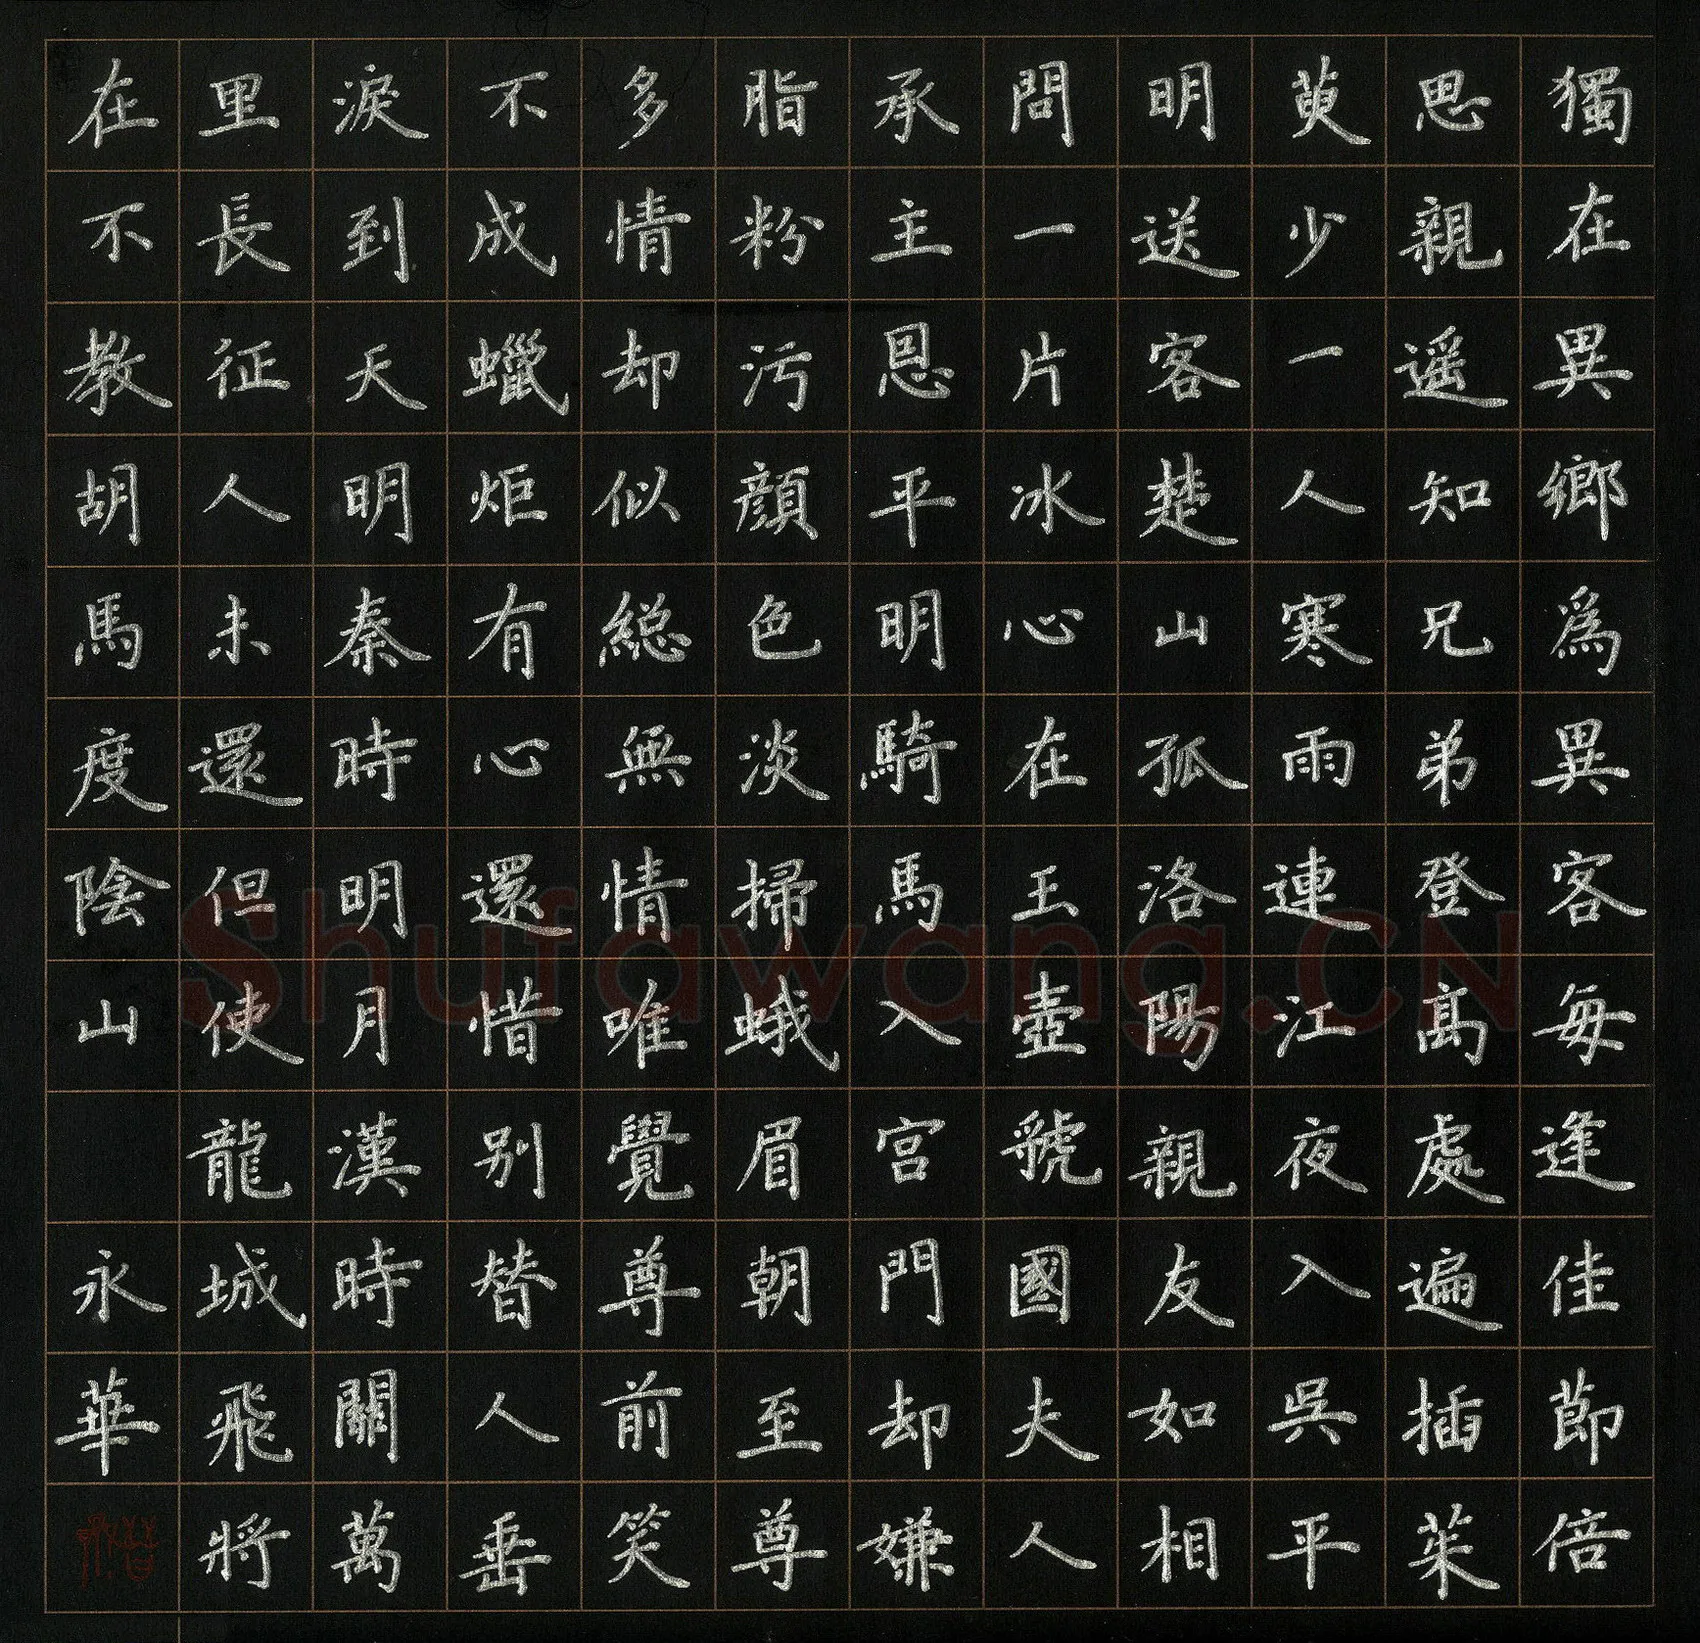 獨在異鄉爲異客每逢佳節倍
思親遥知兄弟登髙處遍插茱
萸少一人寒雨連江夜入吳平
明送客楚山孤洛陽親友如相
問一片冰心在玉壺虢國夫人
承主恩平明騎馬入宫門却嫌
脂粉污顔色淡掃蛾眉朝至尊
多情却似総無情唯覺尊前笑
不成蠟炬有心還惜别替人垂
淚到天明秦時明月漢時關萬
里長征人未還但使龍城飛將
在不教胡馬度陰山 永華
Shufawang.CN